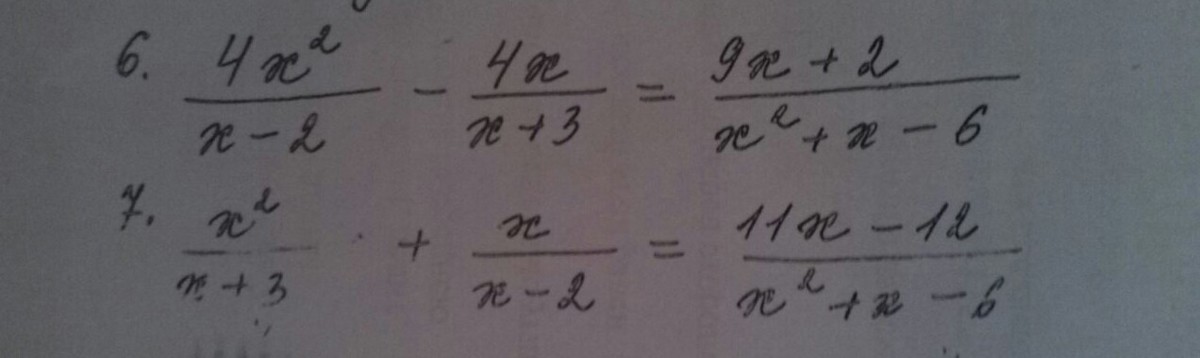 6. 4x² / (x - 2) - 4x / (x + 3) = (9x + 2) / (x² + x - 6)
7. x² / (x + 3) + x / (x - 2) = (11x - 12) / (x² + x - 6)